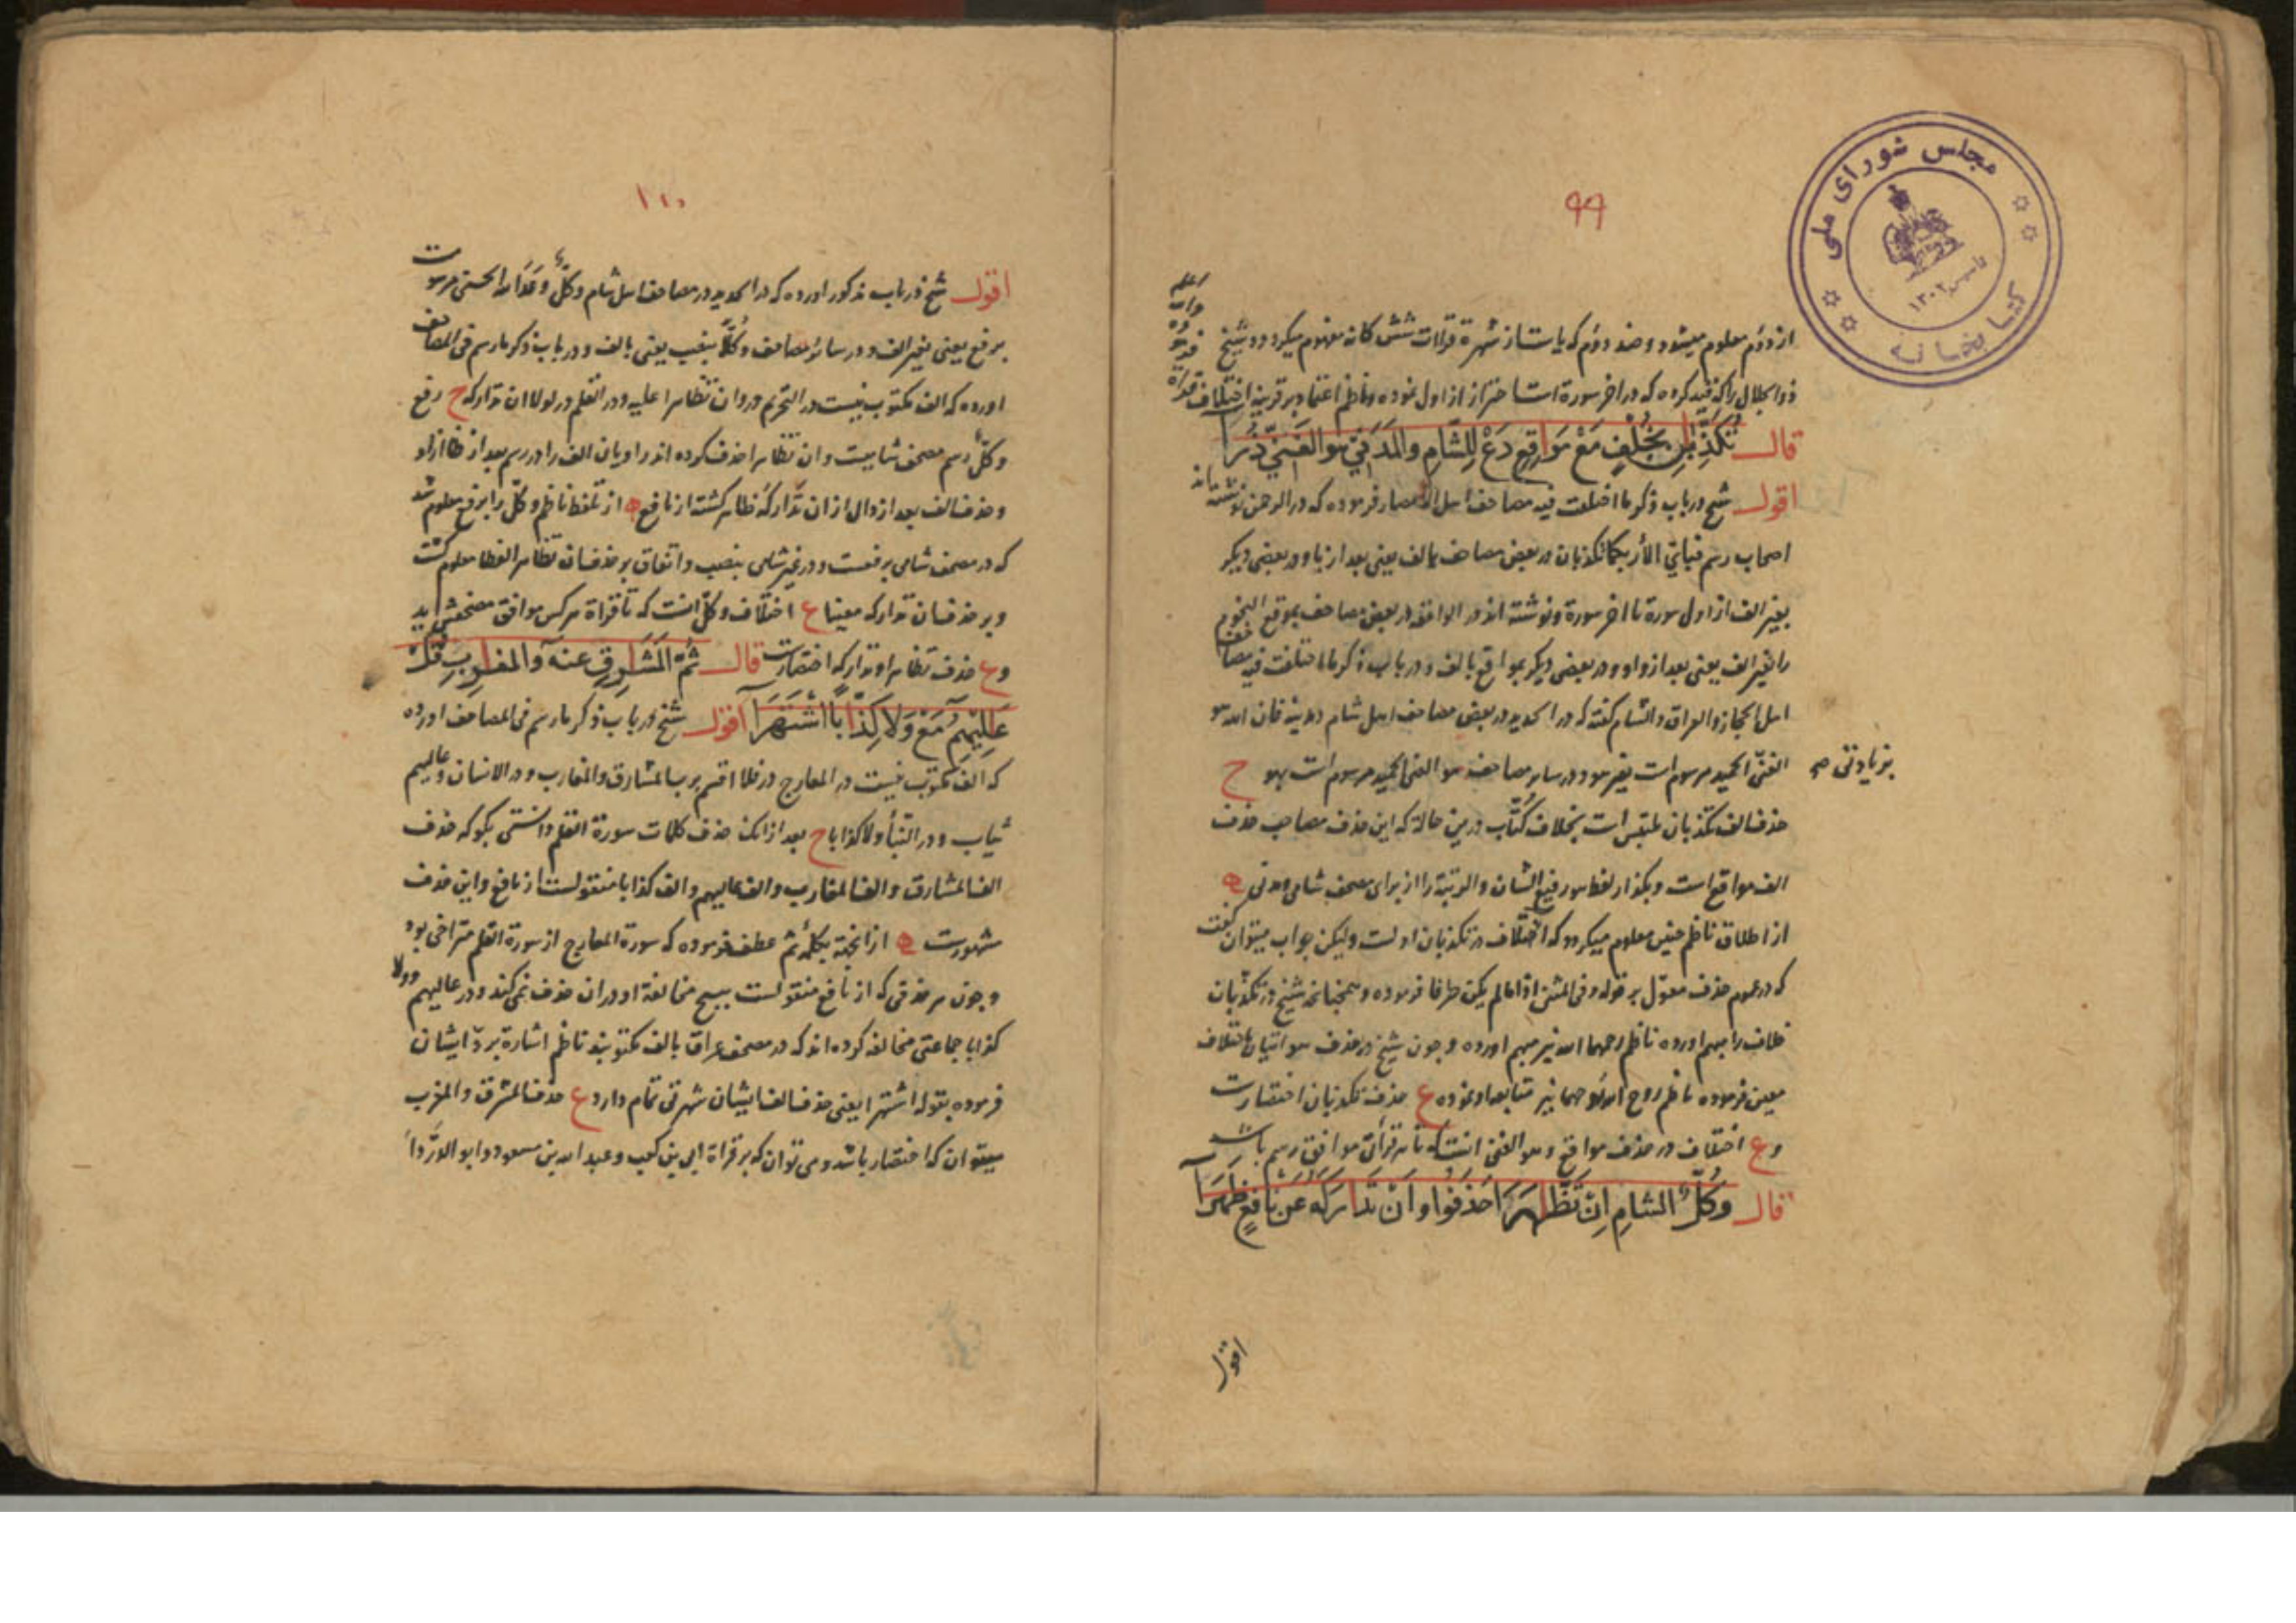 ۹۹
مجلس شورای ملی
کتابخانه
تاسیس ۱۳۰۲
از دوم معلوم میشود و ضد دوم که یاست از شهرة قراات شش کانه مفهوم میکردد و شیخ
ذو الجلال را که قید کرده که در اخر سورة است احتراز از اول نموده و ناظم اعتماد بر قرینه اختلاف قراة
قال تُكَذِّبٰنِ بِخُلْفٍ مَعْ مَوَاقِعِ دَعْ لِلشَّامِ والمَدَنِي هو الغَنِيُّ ذُرَا
اقول شیخ در باب ذکر ما اختلفت فیه مصاحف اهل الامصار فرموده که در الرحمن نوشته اند
اصحاب رسم فبای الآء ربکما تکذبان در بعض مصاحف بالف یعنی بعد از با و در بعضی دیکر
بغیر الف از اول سورة تا اخر سورة و نوشته اند در الواقعة در بعض مصاحف بموقع النجوم
را بغیر الف یعنی بعد از واو و در بعضی دیکر بمواقع بالف و در باب ذکر ما اختلفت فیه مصاحف
اهل الحجاز والعراق والشام کفته که در الحدید در بعض مصاحف اهل شام و مدینه فان الله هو
الغنی الحمید مرسوم است بغیر هو و در سایر مصاحف هو الغنی الحمید مرسوم است بهو ح
بزیادتی صح
حذف الف تکذبان ملتبس است بخلاف کتّاب در این حالة که این حذف مصاحب حذف
الف مواقع است و بکذار لفظ هو رفیع الشان والرتبة را از برای مصحف شامی و مدنی ه
از اطلاق ناظم چنین معلوم میکردد که اختلاف در تکذبان اولست ولیکن جواب میتوان کفت
که در عموم حذف معوّل بر قوله وفی المثنی اذا ما لم یکن طرفا فرموده و همچنانچه شیخ در تکذبان
خلاف را مبهم اورده ناظم رحمهما الله نیز مبهم اورده و چون شیخ در حذف هو اتیان باختلاف
معین فرموده ناظم روح الله روحهما نیز متابعه او نموده ع حذف تکذبان اختصارست
و ع اختلاف در حذف مواقع و هو الغنی انست که تا هر قرائتی موافق رسم باشد
قال وَكُلٌّ الشامِ اِنْ تَظَّاهَرَا حَذَفُوا وأَنْ تَدَارَكَهُ عَنْ نَافِعٍ ظَهَرَا
اقول
۱۰۰
اقول شیخ در باب مذکور اورده که در الحدید در مصاحف اهل شام وکلٌّ وعد الله الحسنی مرسوست
برفع یعنی بغیر الف و در سائر مصاحف وکلاًّ بنصب یعنی بالف و در باب ذکر ما رسم فی المصاحف
اورده که الف مکتوب نیست در التحریم در وان تظاهرا علیه و در القلم در لولا ان تدارکه ح رفع
وکلٌّ رسم مصحف شامیست وان تظاهرا حذف کرده اند راویان الف را در رسم بعد از ظا ازاو
و حذف الف بعد از دال از ان تدارکه ظاهر کشته از نافع ه از تلفظ ناظم وکلٌّ را برفع معلوم شد
که در مصحف شامی برفعست و در غیر شامی بنصب و اتفاق بر حذف ان تظاهرا لفظا معلوم کشت
و بر حذف ان تدارکه معینا ع اختلاف وکلّ انست که تا قراة هر کس موافق مصحفش اید
و ع حذف تظاهرا و تدارکه اختصارست قال ثُمَّ الْمَشٰرِقِ عنهُ والمغٰرِبِ قُلْ
عٰلِيْهِمُ مَعْ وَلا كِذّٰبًا اشْتَهَرَا اقول شیخ در باب ذکر ما رسم فی المصاحف اورده
که الف مکتوب نیست در المعارج در فلا اقسم برب المشارق والمغارب و در الانسان وعالیهم
ثیاب و در النبأ ولا کذابا ح بعد از انکه حذف کلمات سورة القلم دانستی بکو که حذف
الف المشارق و الف المغارب و الف عالیهم و الف کذابا منقولست از نافع و این حذف
مشهورست ه از انجهة بکلمۀ ثم عطف فرموده که سورة المعارج از سورة القلم متراخی بود
و چون هر حذفی که از نافع منقولست هیچ مخالفة او در ان حذف نمی کند و در عالیهم و ولا
کذابا جماعتی مخالفه کرده اند که در مصحف عراق بالف مکتوبند ناظم اشارة بردّ ایشان
فرموده بقوله اشتهرا یعنی حذف الف ایشان شهرتی تمام دارد ع حذف المشرق و المغرب
میتوان که اختصار باشد و می توان که بر قراة ابی بن کعب و عبد الله بن مسعود و ابو الدّرداَ